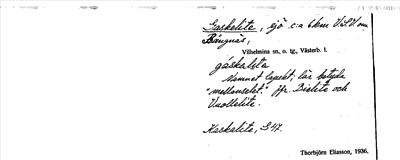 Gaskelite, sjö c:a 6 km V.S.V. om
Bångnäs,
Vilhelmina sn, o. tg., Västerb. l.
gáskaleta
Namnet lapskt; lär betyda
"mellanselet." Jfr. Dielite och
Vuollelite.
Kaskalite, S 47.
Thorbjörn Eliasson, 1936.